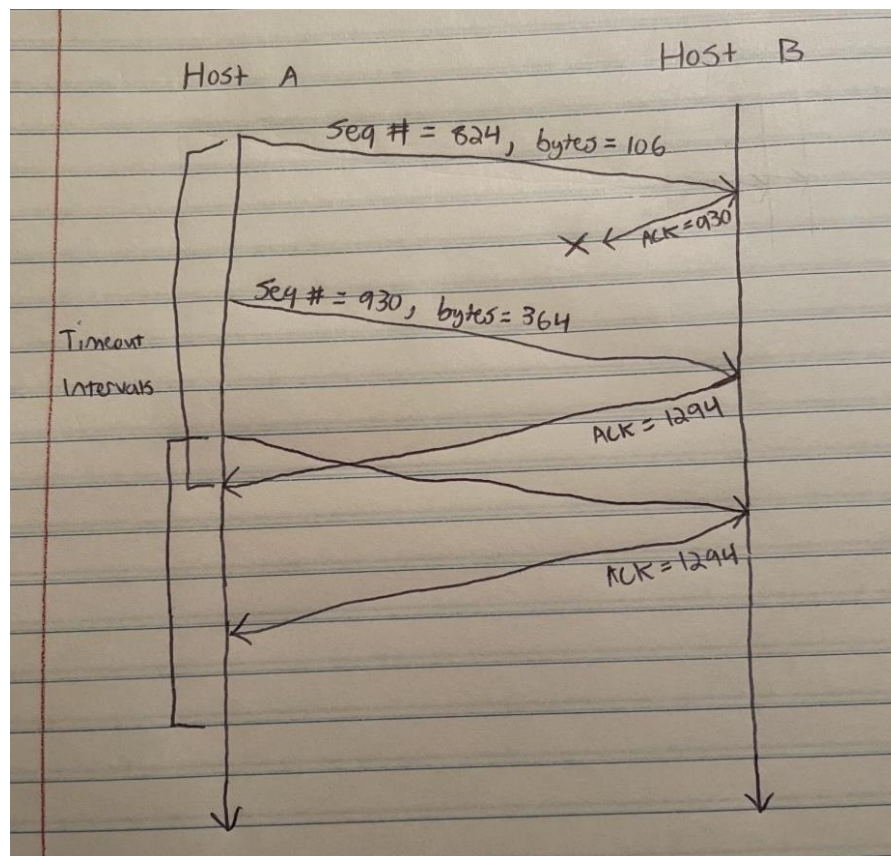 Host A
Host B
Seq # = 824, bytes = 106
ACK = 930
Seq # = 930, bytes = 364
Timeout
Intervals
ACK = 1294
ACK = 1294